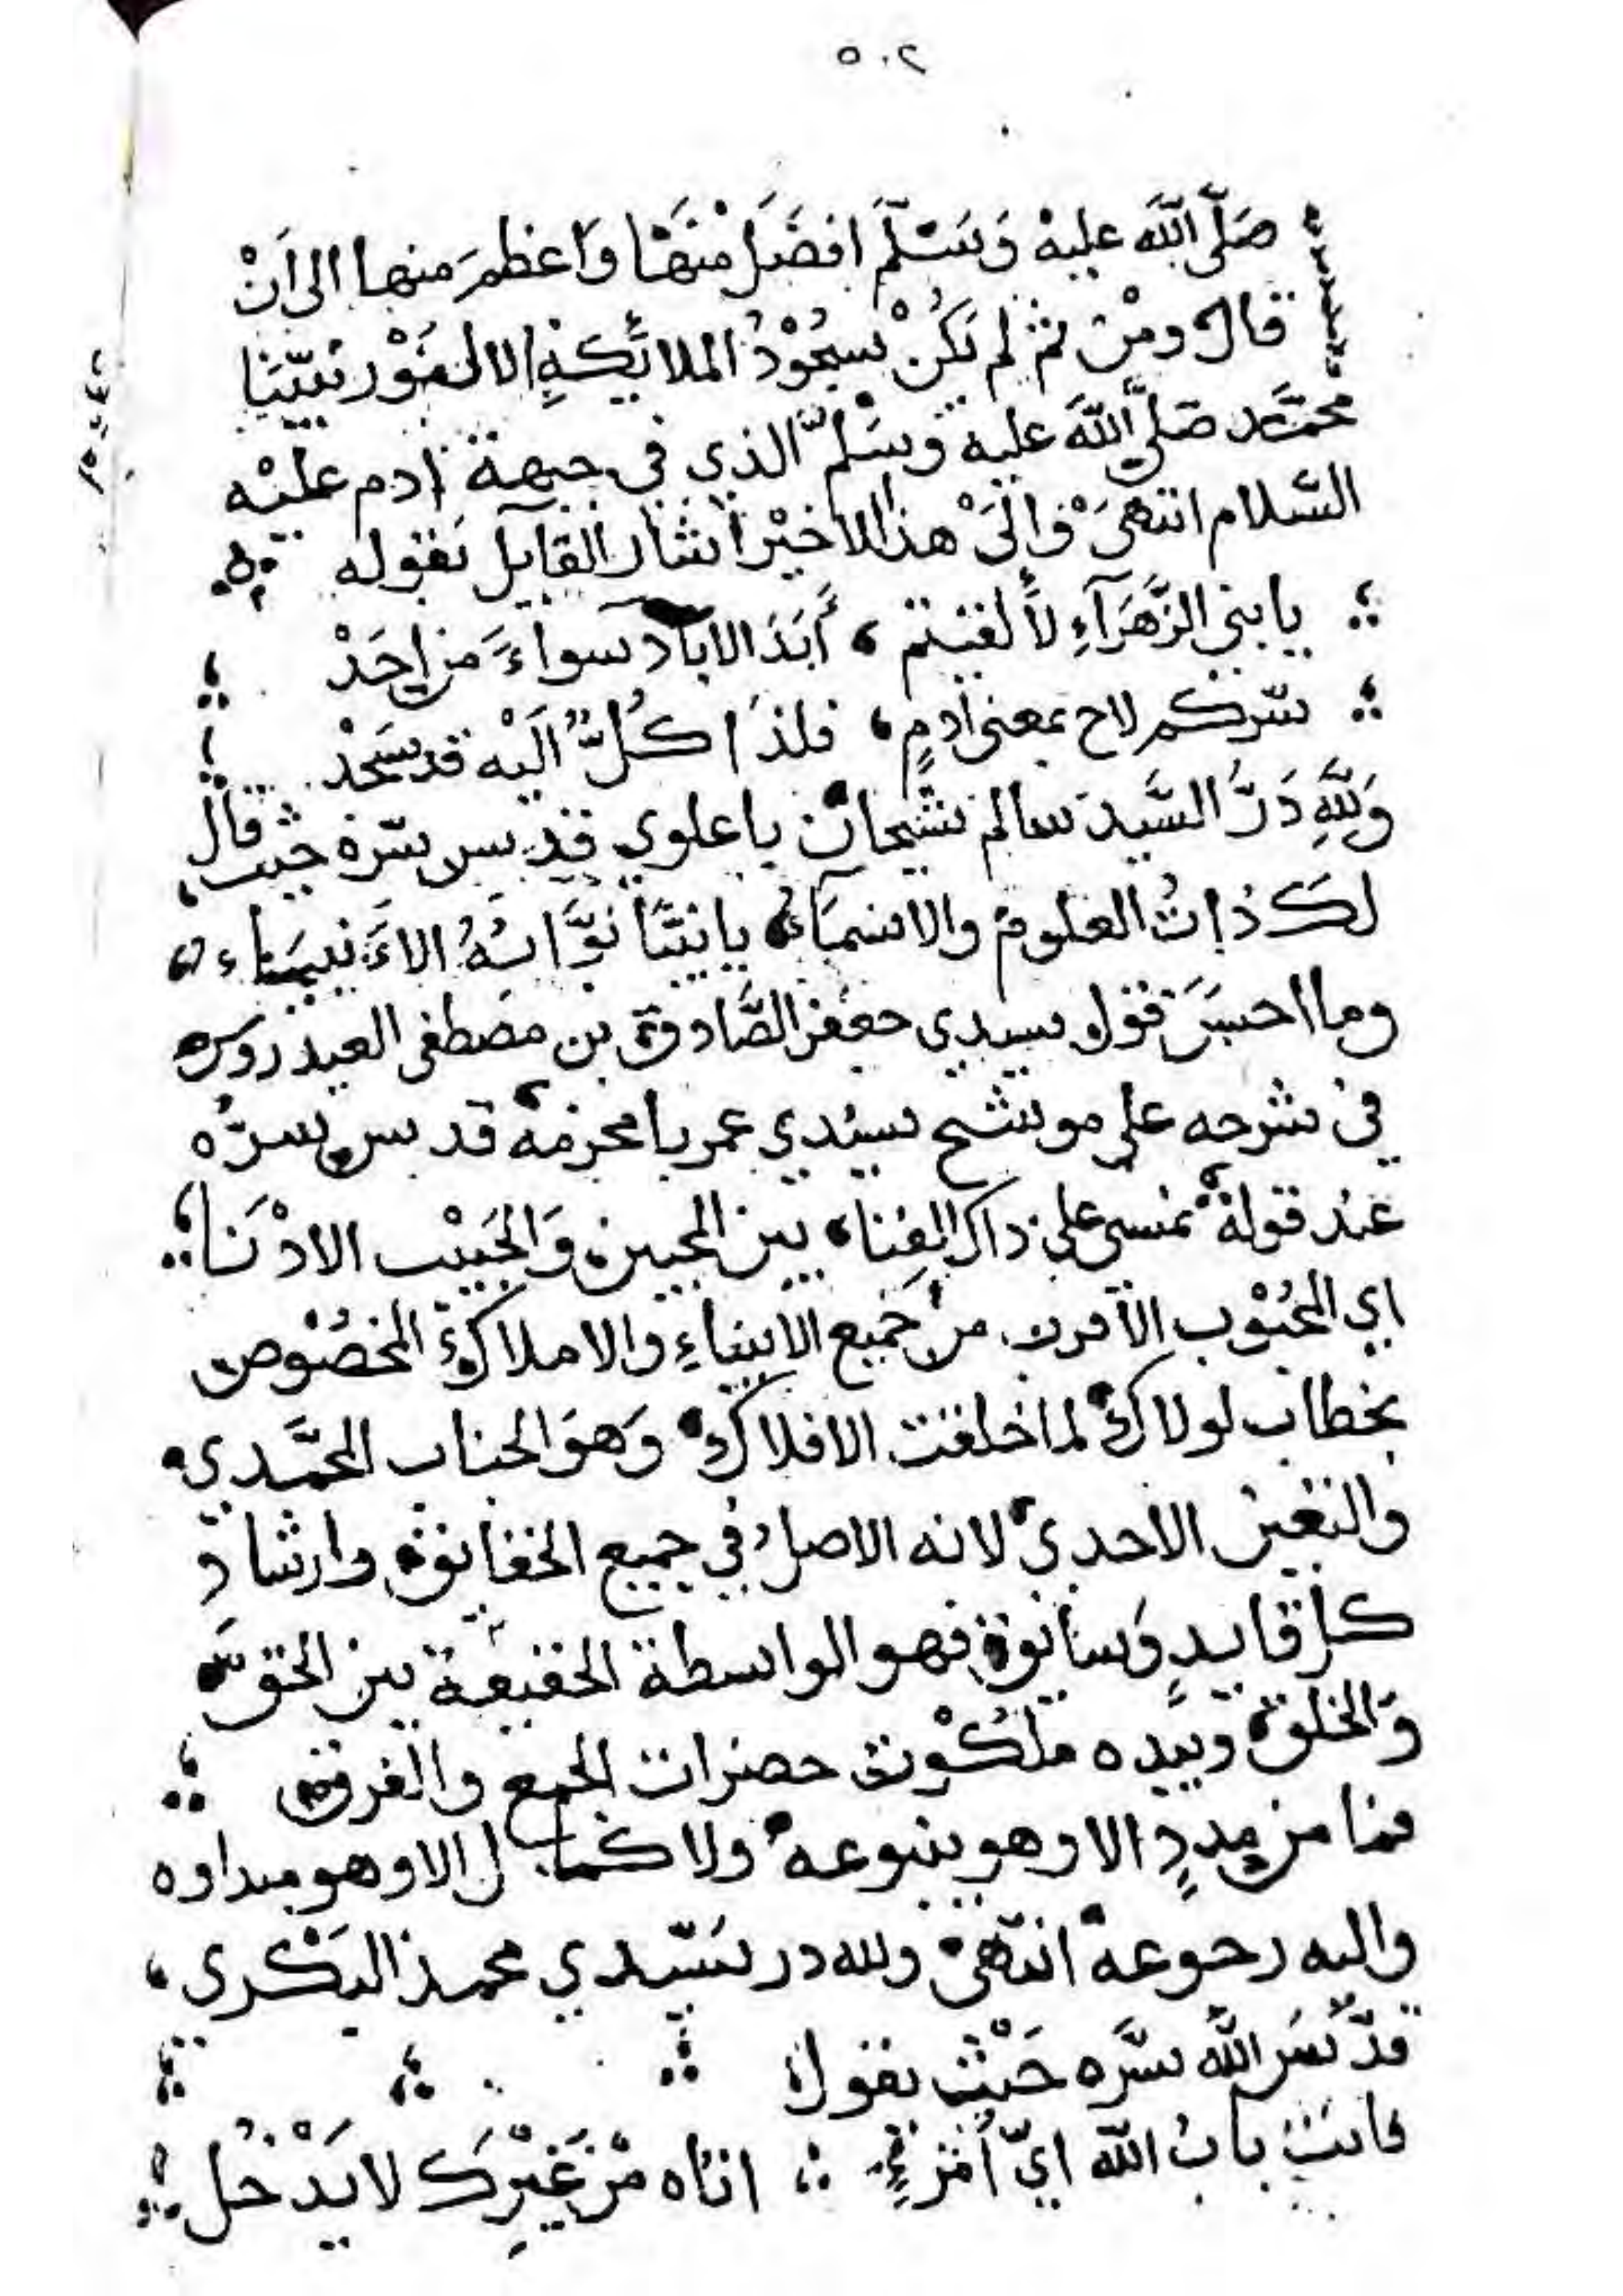 ٥٠٢
صَلَّى اللَّه عليهْ وَسَلَّمَ افضَلَ مِنْهَا وَاعظمَ منها الى اَنْ
قال ومِنْ ثم لم يَكُنْ سجُوْدُ الملائِكةِ الا لنُوْر نبيّنا
محمَّد صَلَّى اللَّه عليه وسَلّم الذي في جبهة ادم عليْه
السّلام انتهىَ وَاِلَىْ هذا الاخيْر اشار القايل بقوله
يا بني الزَّهَرَآءِ لاَ لقيتم ، أَبَدَ الاباد سواءً من احَدْ
سرّكم لاح بمعنى ادمٍ ، فلذَا كُلٌّ اِلَيْه قد سَجَدْ
وَلِلَّهِ دَرُّ السَّيد سالم شيخان باعلوي قدس سرّه حيث قال
لكَ ذاتُ العلوم والاسمَاءُ يا نبيًّا نوَّابُهُ الاَنبياء
وما احسنَ قول سيدي جعفر الصَّادق بن مصطفى العيدروس
في شرحه على موشح سيدي عمر بامخرمة قدس سرُّه
عند قوله نمسي على ذاك الفنا، بين المحبين وَالحَبِيْب الادْنَا
اي المحبُوْب الأقرب من جَميع الانبياءِ والاملاك المخصُوْص
بخطاب لولاك لما خلقت الافلاك وَهوَ الجناب المحمَّدي
والتعين الاحدي لانه الاصل في جميع الحقائق وارشاد
كل قايدٍ وَسائق فهو الواسطة الحقيقة بين الحقّ
وَالخلق وبيده ملكُوْت حضرات الجمع والفرق
فما من مددٍ الا وهو ينبوعه ولا كمال الا وهو مبداوه
واليه رجوعه انتهىْ ولله در سَيّدي محمد البَكْري ،
قدَّسَ اللَّه سرَّه حَيْث يقول
فانتَ بابُ اللَّه ايّ اُمْرِءٍ اتاه مْن غَيْرِكَ لا يَدْخُل